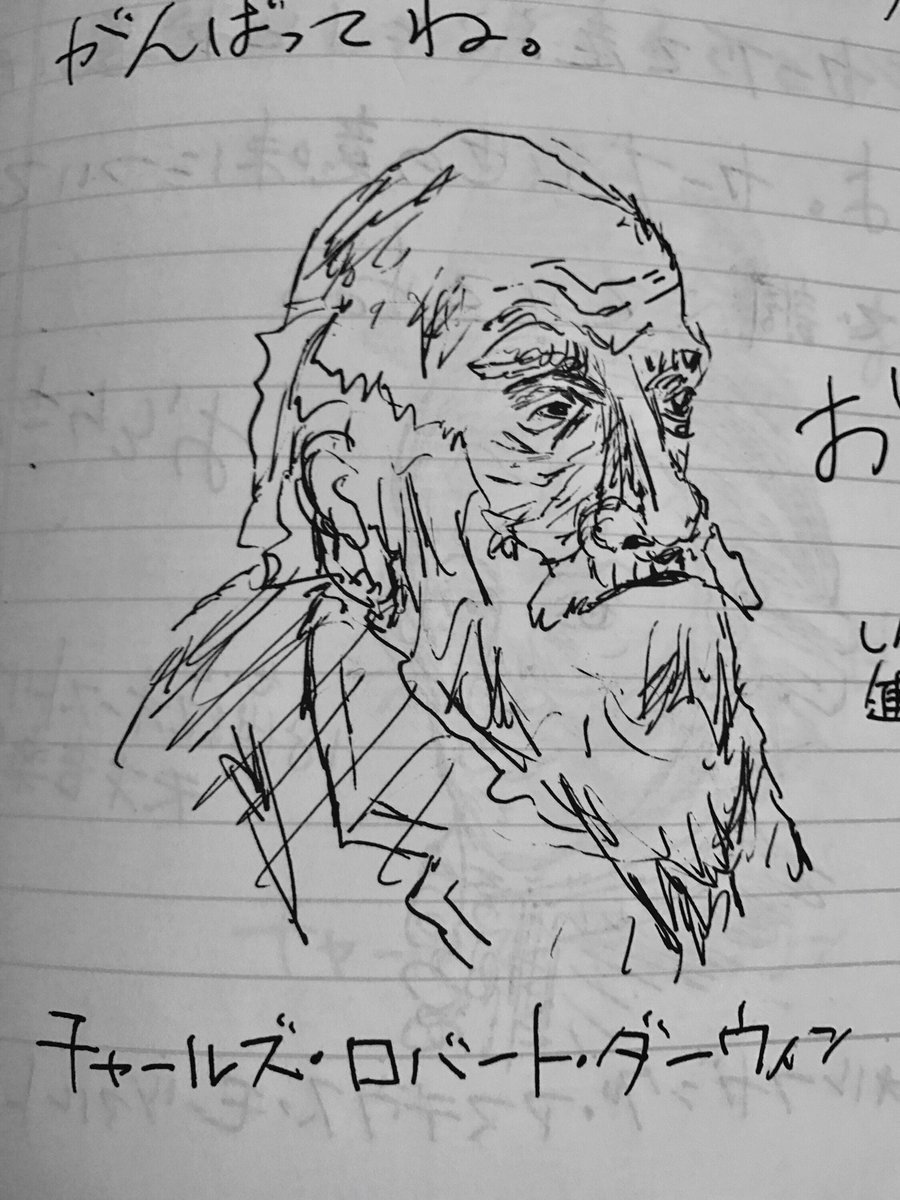 がんばってね。
お
チャールズ・ロバート・ダーウィン